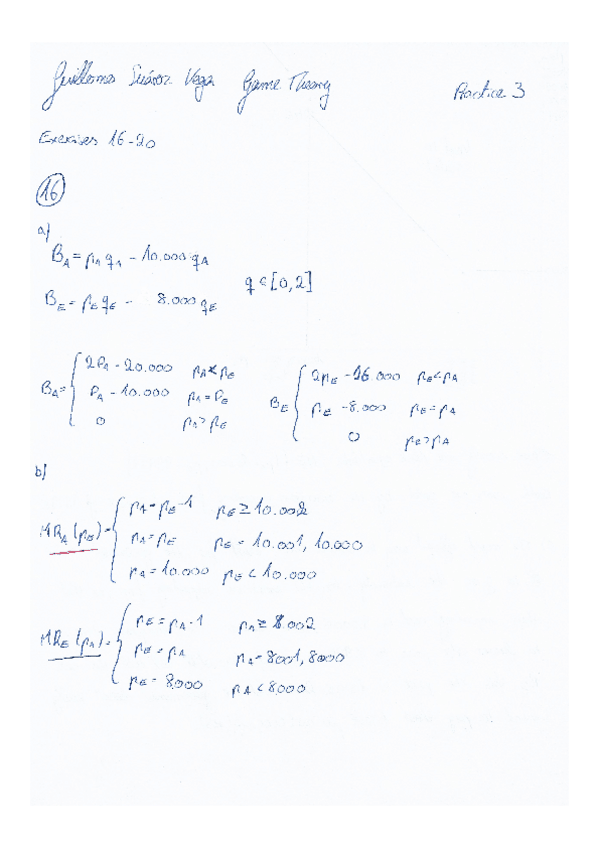 Guillermo Suárez Vega Game Theory Practice 3
Exercises 16-20
16
a)
B_A = p_A q_A - 10.000 q_A
q ∈ [0,2]
B_E = p_E q_E - 8.000 q_E
B_A = { 2P_A - 20.000 p_A < p_E
P_A - 10.000 p_A = P_E
0 p_A > p_E
B_E { 2p_E - 16.000 p_E < p_A
p_E - 8.000 p_E = p_A
0 p_E > p_A
b)
MR_A (p_E) = { p_A = p_E - 1 p_E ≥ 10.002
p_A = p_E p_E = 10.001, 10.000
p_A = 10.000 p_E < 10.000
MR_E (p_A) = { p_E = p_A - 1 p_A ≥ 8.002
p_E = p_A p_A = 8001, 8000
p_E = 8.000 p_A < 8.000